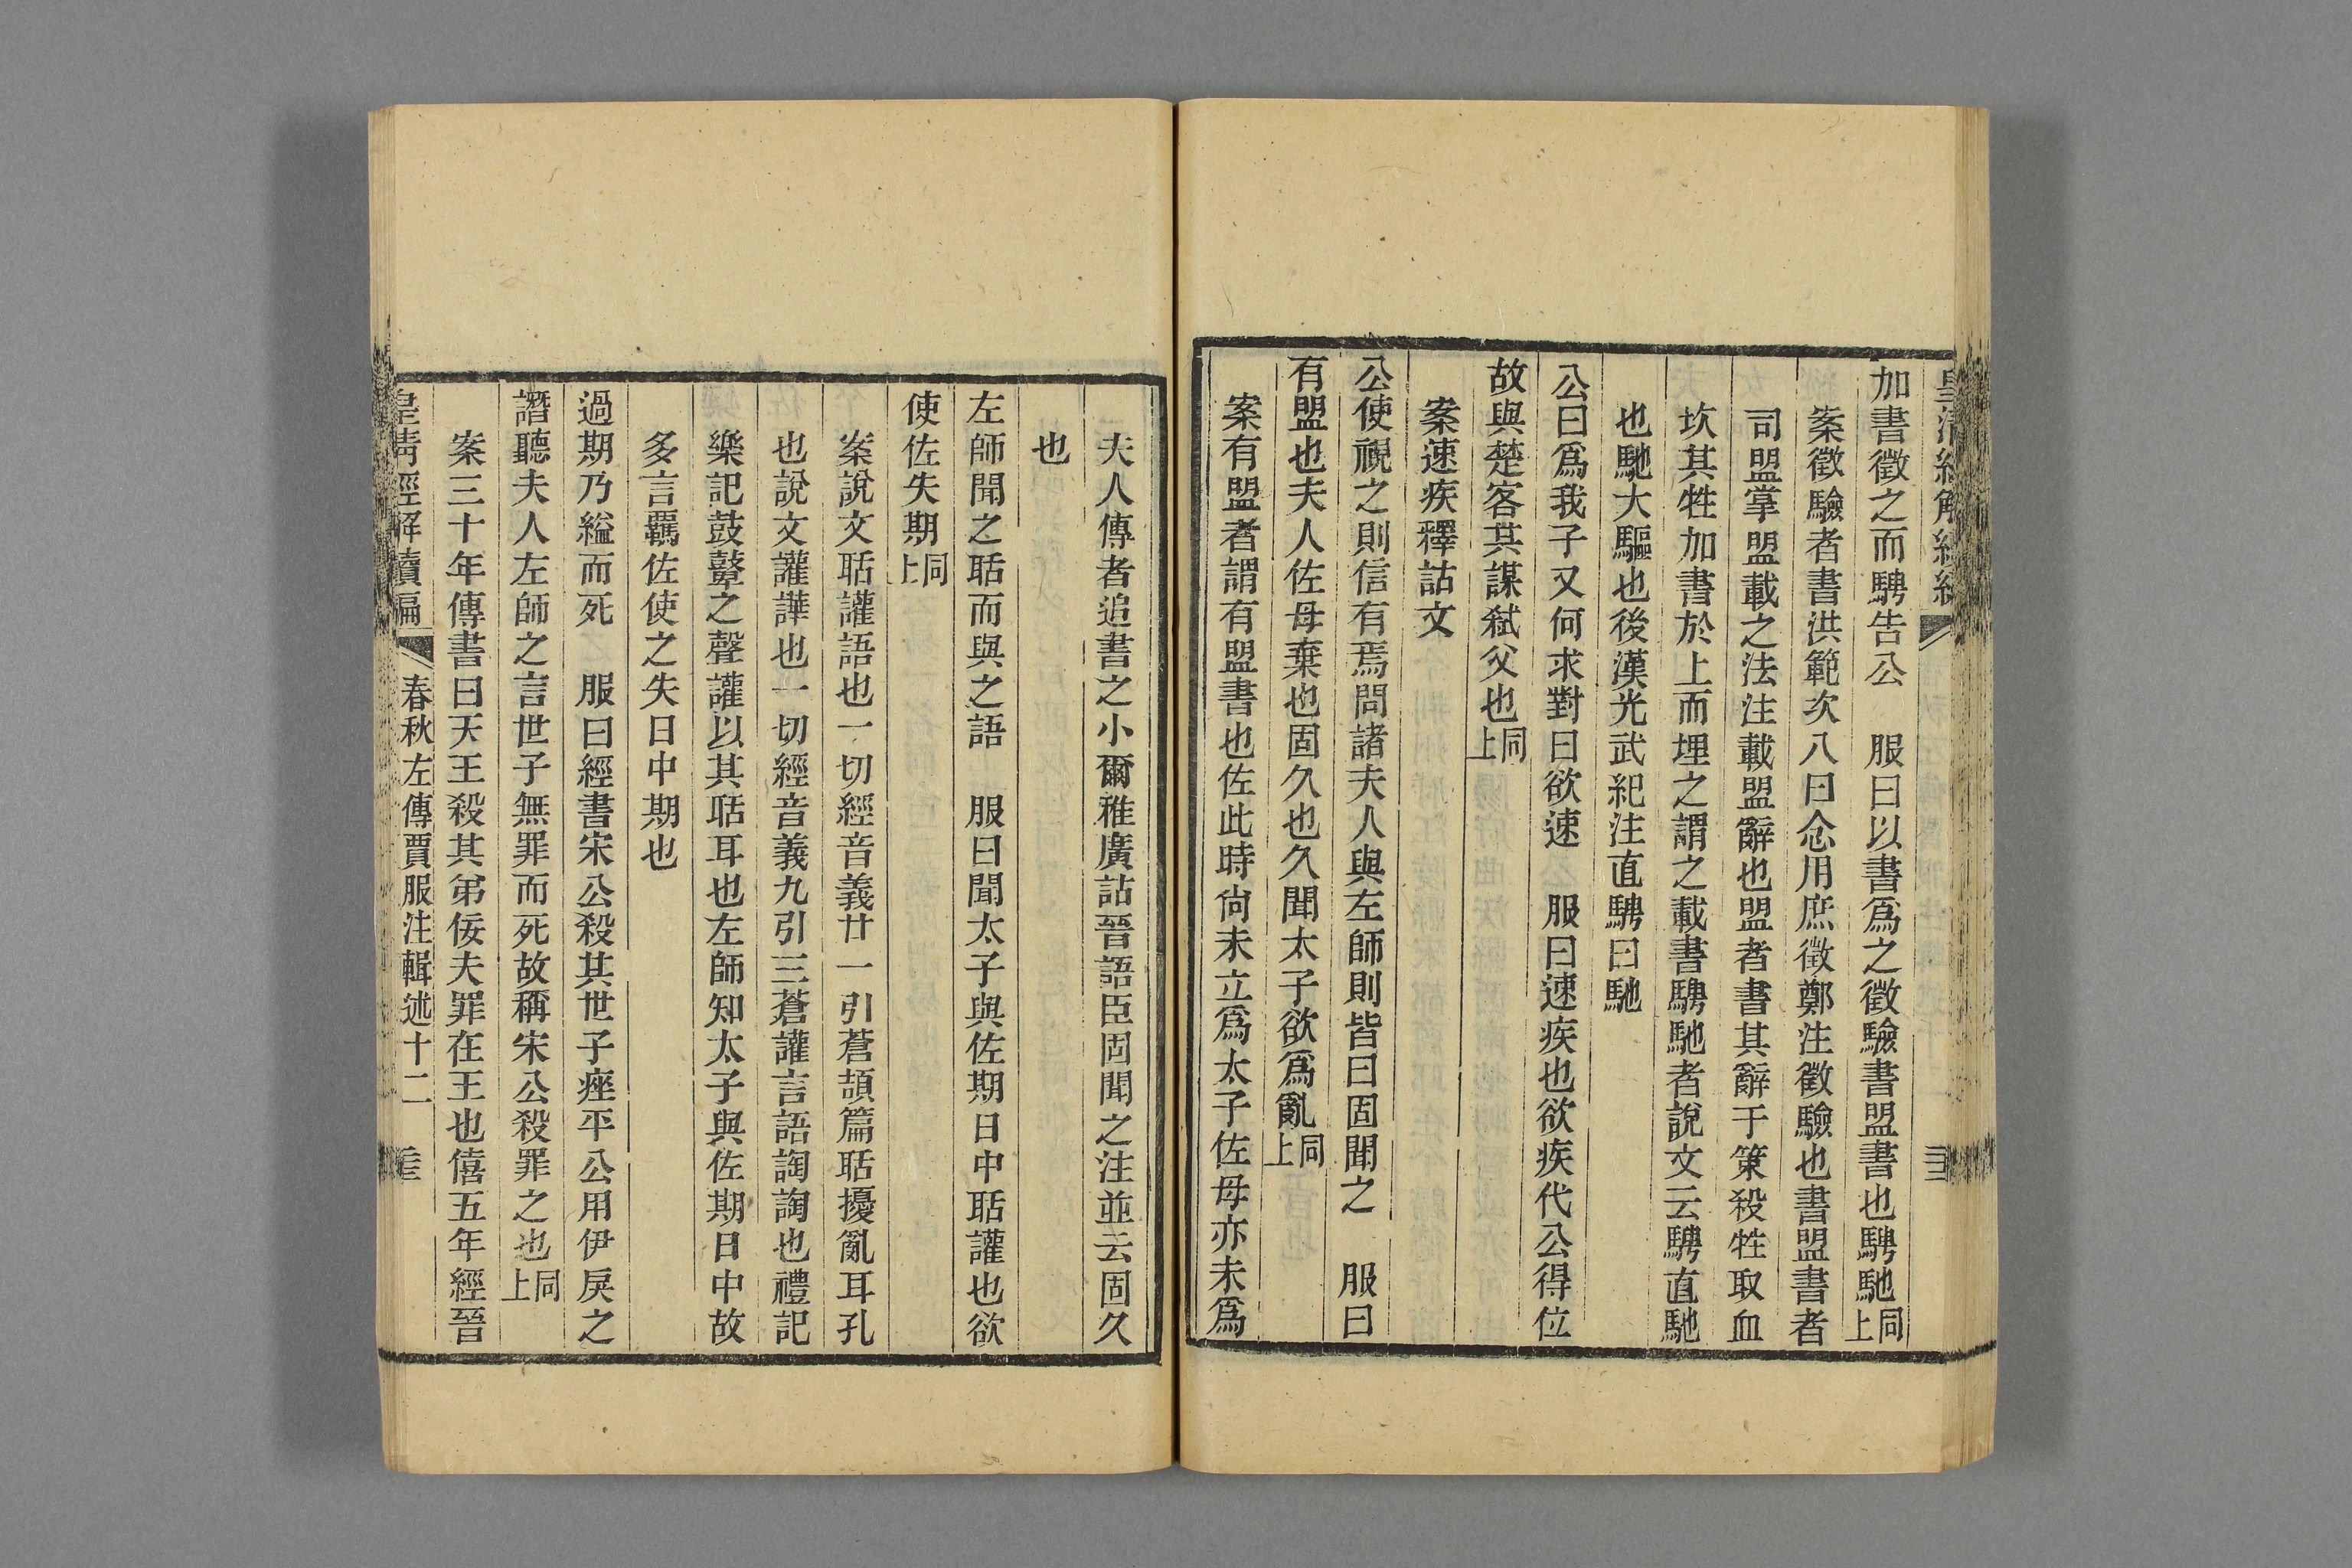 加書徵之而騁告公　服曰以書爲之徵驗書盟書也騁馳同上
案徵驗者書洪範次八曰念用庶徵鄭注徵驗也書盟書者
司盟掌盟載之法注載盟辭也盟者書其辭于策殺牲取血
坎其牲加書於上而埋之謂之載書騁馳者說文云騁直馳
也馳大驅也後漢光武紀注直騁曰馳
公曰爲我子又何求對曰欲速　服曰速疾也欲疾代公得位
故與楚客其謀弑父也同上
案速疾釋詁文
公使視之則信有焉問諸夫人與左師則皆曰固聞之　服曰
有盟也夫人佐母棄也固久也久聞太子欲爲亂同上
案有盟者謂有盟書也佐此時尙未立爲太子佐母亦未爲
夫人傳者追書之小爾雅廣詁晉語臣固聞之注並云固久
也
左師聞之聒而與之語　服曰聞太子與佐期日中聒讙也欲
使佐失期同上
案說文聒讙語也一切經音義廿一引蒼頡篇聒擾亂耳孔
也說文讙譁也一切經音義九引三蒼讙言語詾詾也禮記
樂記鼓鼙之聲讙以其聒耳也左師知太子與佐期日中故
多言羈佐使之失日中期也
過期乃縊而死　服曰經書宋公殺其世子痤平公用伊戾之
譖聽夫人左師之言世子無罪而死故稱宋公殺罪之也同上
案三十年傳書曰天王殺其弟佞夫罪在王也僖五年經晉
皇淸經解續編　春秋左傳賈服注輯述十二